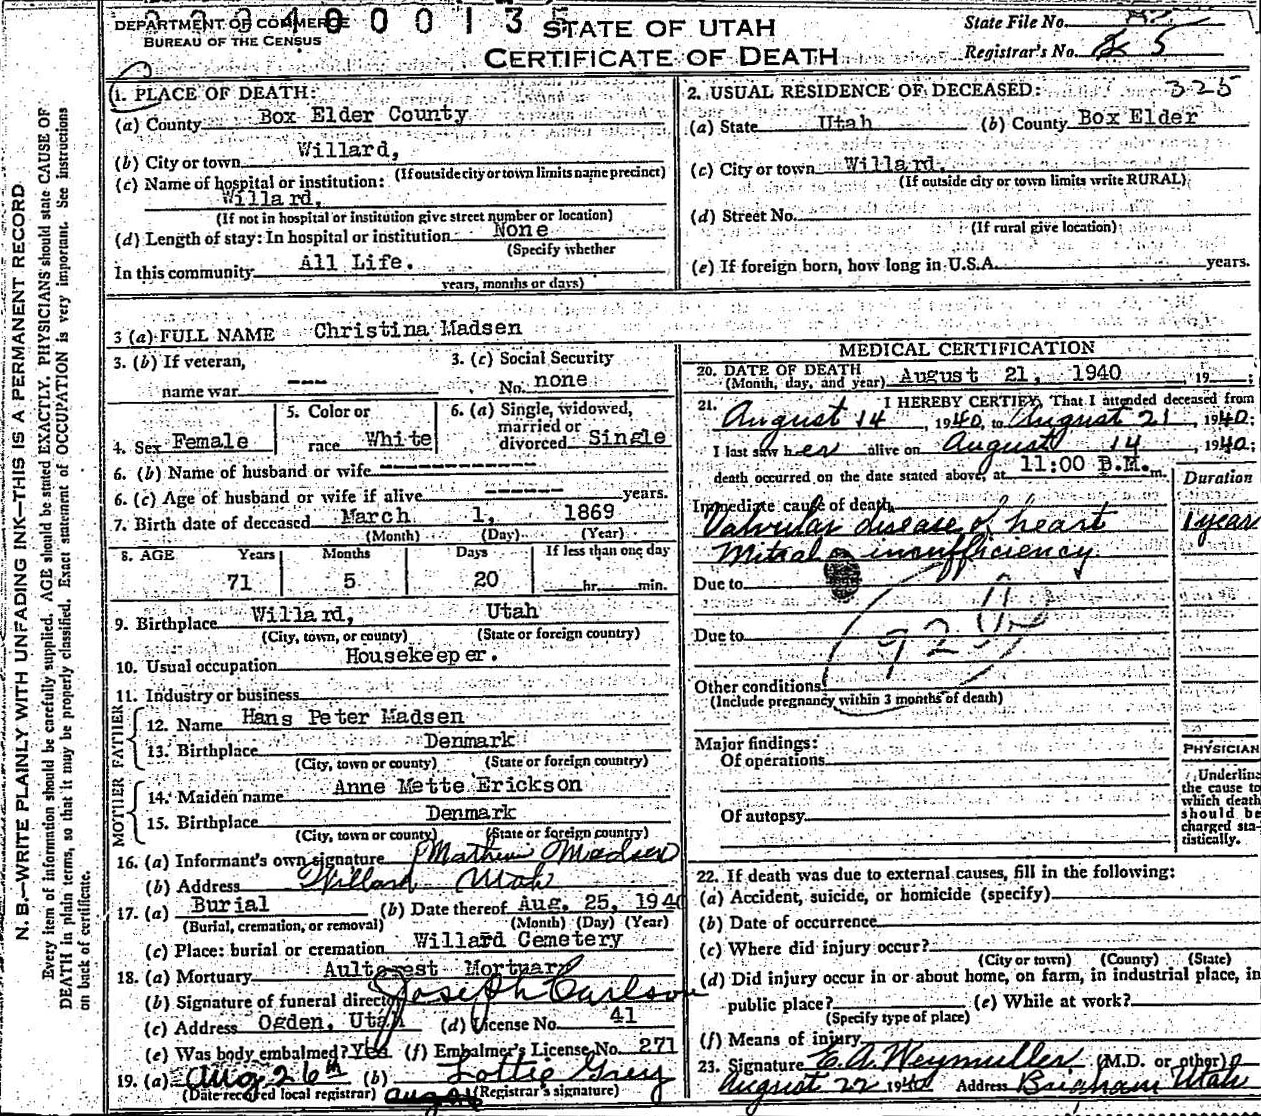 DEPARTMENT OF COMMERCE
BUREAU OF THE CENSUS
STATE OF UTAH
CERTIFICATE OF DEATH
State File No.
Registrar's No. 25
N. B.—WRITE PLAINLY WITH UNFADING INK—THIS IS A PERMANENT RECORD
Every item of information should be carefully supplied. AGE should be stated EXACTLY. PHYSICIANS should state CAUSE OF
DEATH in plain terms, so that it may be properly classified. Exact statement of OCCUPATION is very important. See instructions
on back of certificate.
1. PLACE OF DEATH:
(a) County Box Elder County
(b) City or town Willard,
(If outside city or town limits name precinct)
(c) Name of hospital or institution:
Willard,
(If not in hospital or institution give street number or location)
(d) Length of stay: In hospital or institution None
(Specify whether
In this community All Life.
years, months or days)
2. USUAL RESIDENCE OF DECEASED: 325
(a) State Utah (b) County Box Elder
(c) City or town Willard,
(If outside city or town limits write RURAL)
(d) Street No.
(If rural give location)
(e) If foreign born, how long in U.S.A. years.
3 (a) FULL NAME Christina Madsen
3. (b) If veteran,
name war ---
3. (c) Social Security
No. none
4. Sex Female
5. Color or
race White
6. (a) Single, widowed,
married or
divorced Single
6. (b) Name of husband or wife
6. (c) Age of husband or wife if alive ------ years.
7. Birth date of deceased March 1, 1869
(Month) (Day) (Year)
8. AGE Years Months Days If less than one day
71 5 20 hr. min.
9. Birthplace Willard, Utah
(City, town, or county) (State or foreign country)
10. Usual occupation Housekeeper.
11. Industry or business
FATHER
12. Name Hans Peter Madsen
13. Birthplace Denmark
(City, town or county) (State or foreign country)
MOTHER
14. Maiden name Anne Mette Erickson
15. Birthplace Denmark
(City, town or county) (State or foreign country)
16. (a) Informant's own signature Mathew Madsen
(b) Address Willard Utah
17. (a) Burial (b) Date thereof Aug. 25, 1940
(Burial, cremation, or removal) (Month) (Day) (Year)
(c) Place: burial or cremation Willard Cemetery
18. (a) Mortuary Aultorest Mortuary
(b) Signature of funeral director Joseph Carlson
(c) Address Ogden, Utah (d) License No. 41
(e) Was body embalmed? Yes (f) Embalmer's License No. 271
19. (a) Aug 26th (b) Lottie Grey
(Date received local registrar) (Registrar's signature)
MEDICAL CERTIFICATION
20. DATE OF DEATH
(Month, day, and year) August 21, 1940, 19 ;
21. I HEREBY CERTIFY, That I attended deceased from
August 14, 1940, to August 21, 1940;
I last saw her alive on August 14, 1940;
death occurred on the date stated above, at 11:00 P.M. m.
Duration
Immediate cause of death
Valvular disease of heart 1 year
Mitral insufficiency
Due to
92
Due to
Other conditions
(Include pregnancy within 3 months of death)
Major findings:
Of operations
Of autopsy
PHYSICIAN
Underline
the cause to
which death
should be
charged sta-
tistically.
22. If death was due to external causes, fill in the following:
(a) Accident, suicide, or homicide (specify)
(b) Date of occurrence
(c) Where did injury occur?
(City or town) (County) (State)
(d) Did injury occur in or about home, on farm, in industrial place, in
public place? (e) While at work?
(Specify type of place)
(f) Means of injury
23. Signature E. A. Weymuller (M.D. or other)
August 22 1940 Address Brigham Utah